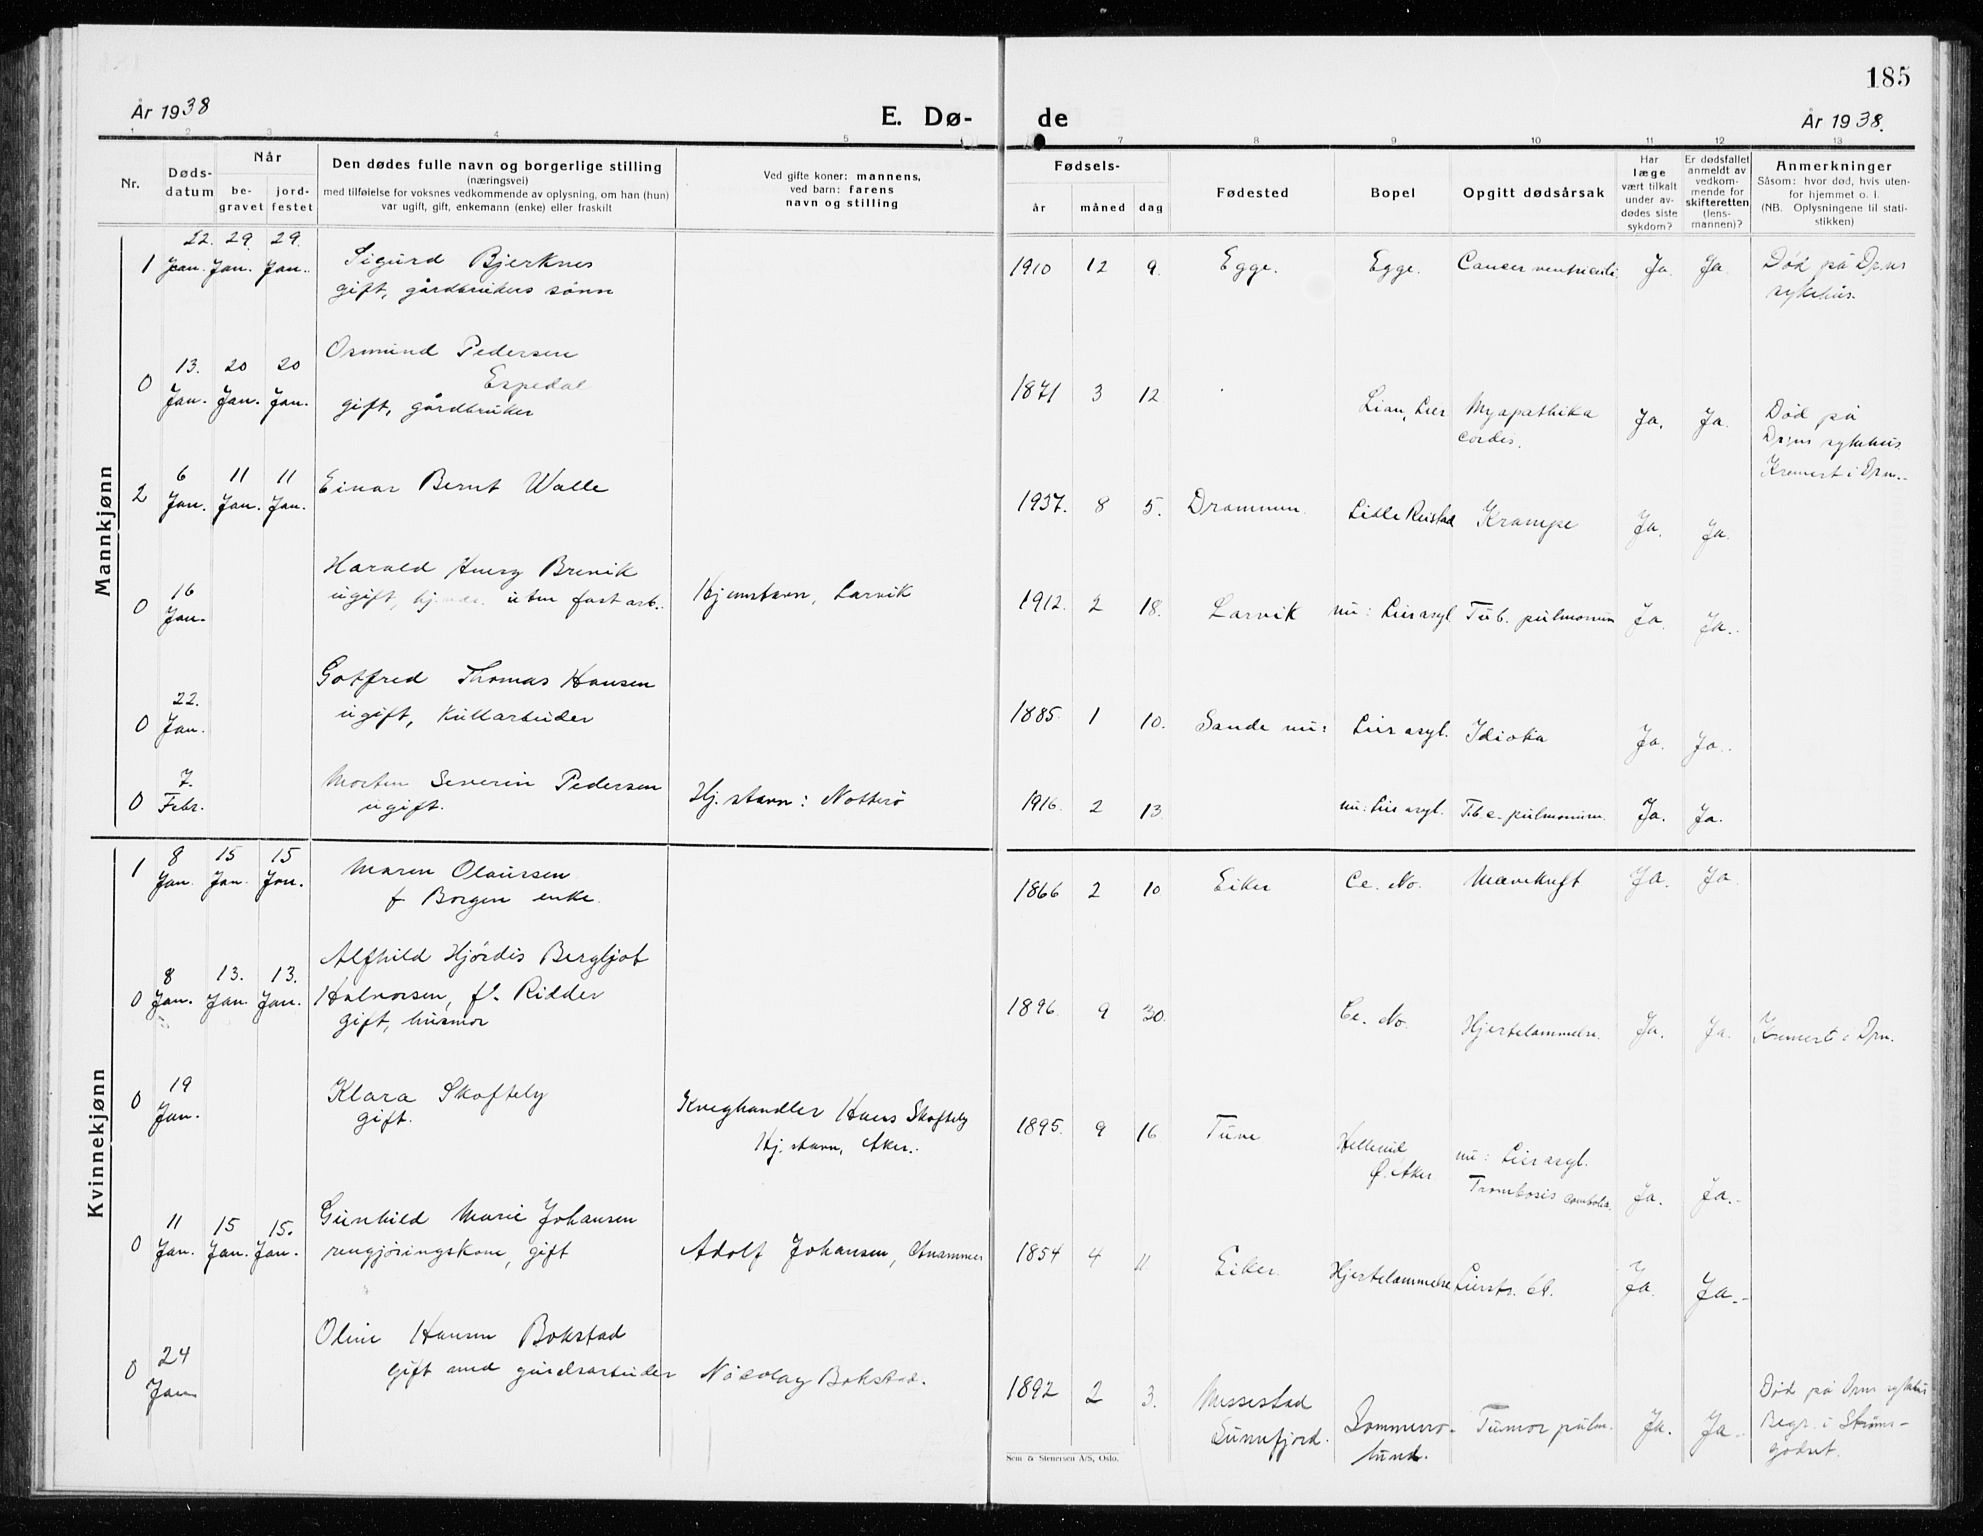 185
År 1938
E. Dø-
de
År 1938.
1 2 3 4 5 7 8 9 10 11 12 13
Nr.
Døds-
datum
Når
be-
gravet
jord-
festet
Den dødes fulle navn og borgerlige stilling
(næringsvei)
med tilføielse for voksnes vedkommende av oplysning, om han (hun)
var ugift, gift, enkemann (enke) eller fraskilt
Ved gifte koner: mannens,
ved barn: farens
navn og stilling
Fødsels-
år
måned
dag
Fødested
Bopel
Opgitt dødsårsak
Har
læge
vært tilkalt
under av-
dødes siste
sykdom?
Er dødsfallet
anmeldt av
vedkom-
mende for
skifteretten
(lens-
mannen)?
Anmerkninger
Såsom: hvor død, hvis uten-
for hjemmet o. l.
(NB. Oplysningene til stati-
stikken)
Mannkjønn
22. 29. 29.
1 Jan. Jan. Jan. Sigurd Bjerknes
gift, gårdbrukers sønn
1910 12 9. Egge. Egge. Cancer ventriculi. Ja. Ja. Død på Drms
sykehus.
13. 20 20 Osmund Pedersen
Espedal
0 Jan. Jan. Jan. gift, gårdbruker
1871 3 12 Lian, Lier Myopathika Ja. Ja. Død på
cordis. Drms sykehus
Kremert i Drm.
6 11 11
2 Jan. Jan. Jan. Einar Bernt Walle
1937. 8 5. Drammen. Lille Reistad Krampe Ja. Ja.
16 Harald Brevik
0 Jan. ugift, uten fast arb. Hjemstavn, Larvik
1912. 2 18. Larvik nu: Lier asyl Tub. pulmonum Ja. Ja.
22. Gotfred Thomas Hansen
0 Jan. ugift, Kullarbeider
1885. 1 10. Sande nu: Lier asyl. Idiotia Ja. Ja.
7. Morten Severin Pedersen
0 Febr. ugift. Hj. stavn: Notterö
1916. 2 13. nu: Lier asyl. Tbc. pulmonum. Ja. Ja.
Kvinnekjønn
8 15 15
1 Jan. Jan. Jan. Maren Olaursen
f Borgen enke.
1866 2 10 Eiker Ce. No. Mavekreft Ja. Ja
8 13. 13. Alfhild Hjördis Bergljot
0 Jan. Jan. Jan. Halvorsen, f. Ridder
gift, husmor
1896. 9 30. Ce. No. Hjertelammelse. Ja. Ja. Kremert i Drm.
19
0 Jan. Klara Skoftely
gift. Kveghandler Hans Skoftely
Hj. stavn, Aker.
1895. 9 16. Tune Hellerud nu: Lier asyl.
Ø. Aker Trombosis Ja. Ja.
11 15 15. Gunhild Marie Johansen
0 Jan. Jan. Jan. rengjøringskone, gift Adolf Johansen,
1854 4 11 Eiker. Hjertelammelse Lierstr. Ja. Ja.
24 Oline Hansen Bokstad
0 Jan gift med gårdsarbeider Nicolay Bokstad.
1892 2 3. Messestad Sommerro- Tumor pulm. Ja. Ja. Død på Drm sykehus
Sunnfjord. lund. Begr. i Strøms-
godset.
Sem & Stenersen A/S, Oslo.